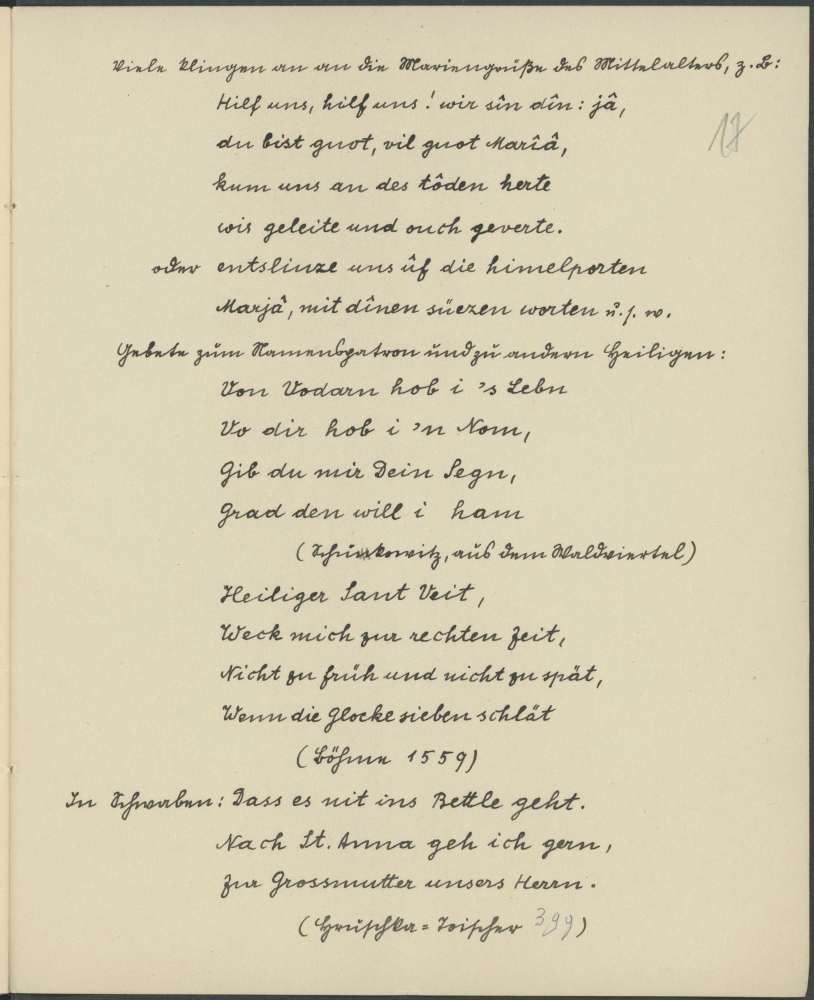 Viele klingen an an die Mariengrüße des Mittelalters, z. B:
Hilf uns, hilf uns! wir sîn dîn: jâ,
17
du bist guot, vil guot Marîâ,
kum uns an des tôden herte
wis geleite und ouch geverte.
oder entslinze uns ûf die himelporten
Marjâ, mit dînen süezen worten u. s. w.
Gebete zum Namenspatron und zu andern Heiligen:
Von Vodarn hob i 's Lebn
Vo dir hob i 'n Nom,
Gib du mir Dein Segn,
Grad den will i ham
(aus dem Waldviertel)
Heiliger Sant Veit,
Weck mich zur rechten Zeit,
Nicht zu früh und nicht zu spät,
Wenn die Glocke sieben schlät
(Böhme 1559)
In Schwaben: Dass es nit ins Bettle geht.
Nach St. Anna geh ich gern,
Zur Grossmutter unsers Herrn.
(Hruschka=Toischer 399)